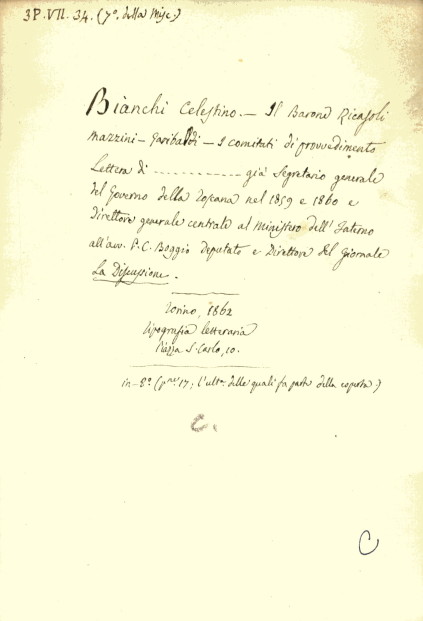 3P.VII. 34. (7º. della Misc.)
Bianchi Celestino. — Il Barone Ricasoli
Mazzini — Garibaldi — I comitati di provvedimento
Lettera di ............ già Segretario generale
del Governo della Toscana nel 1859 e 1860 e
Direttore generale centrale al Ministero dell' Interno
all'avv. P. C. Boggio Deputato e Direttore del Giornale
La Discussione.
Torino, 1862
tipografia letteraria
Piazza S. Carlo, 10.
in-8º (pag. 17; l'ult. delle quali fa parte della coperta.)
C.
C